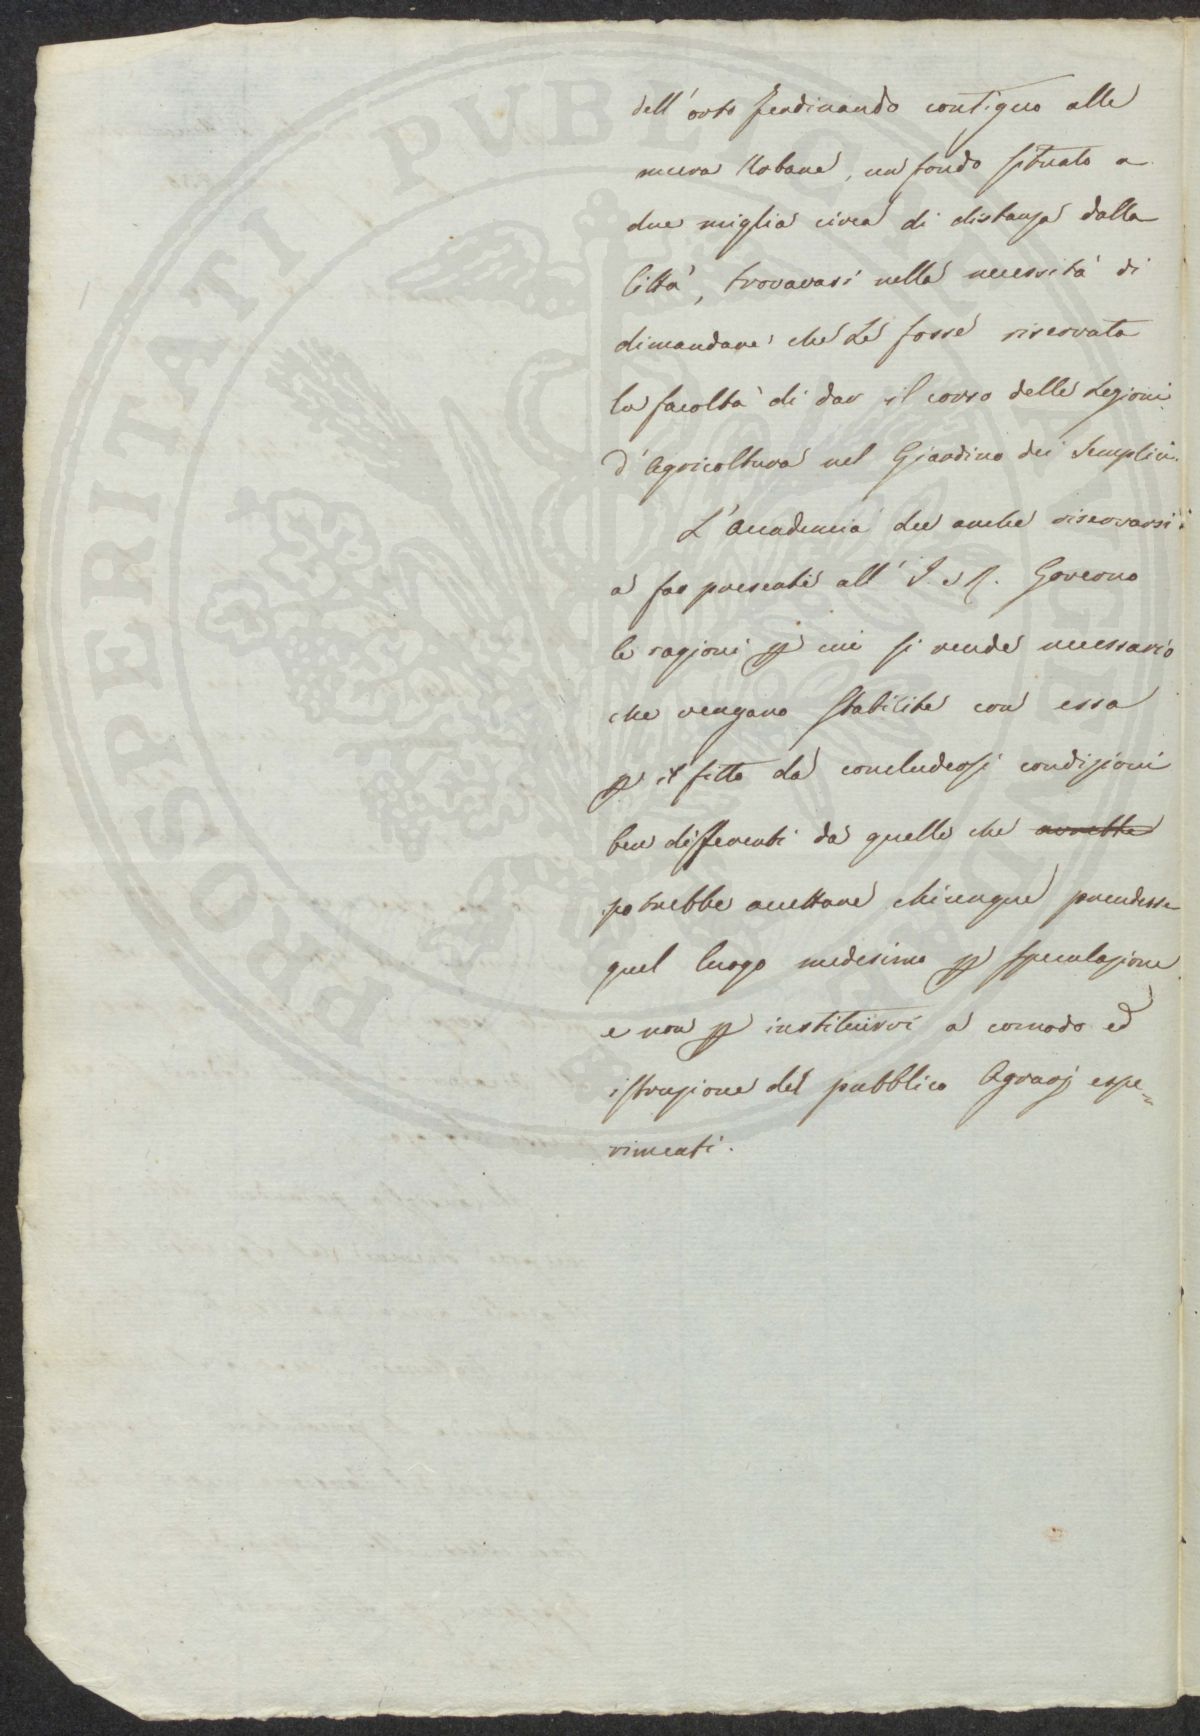 dell'orto ferdinando contiguo alle
mura Urbane, un fondo situato a
due miglia circa di distanza dalla
Città, trovavasi nella necessità di
dimandare che Le fosse riservata
la facoltà di dar il corso delle Lezioni
d'Agricoltura nel Giardino dei Semplici.
L'Accademia dee anche riservarsi
a far presenti all'I. e R. Governo
le ragioni p cui si rende necessario
che vengano stabilite con essa
p il fitto da concludersi condizioni
ben differenti da quelle che avrebbe
potrebbe accettare chiunque prendesse
quel luogo medesimo p speculazione
e non p instituirvi a comodo ed
istruzione del pubblico Agrarj espe=
rimenti.
PROSPERITATI PUBLICAE